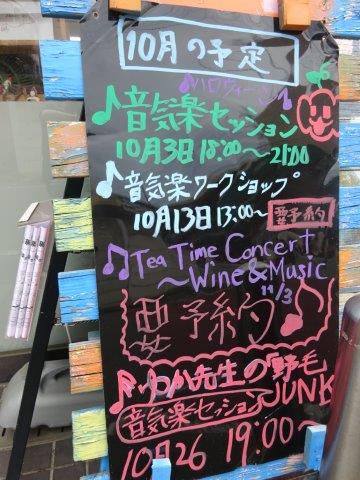 10月の予定
♪ハロウィーン♪
♪音気楽セッション
10月3日18:00〜21:00
♪音気楽ワークショップ
10月13日13:00〜 要予約
♫Tea Time Concert
〜Wine & Music
11/3
要予約♪
♪ゆか先生の「野毛
音気楽セッション JUNK
10月26 19:00〜